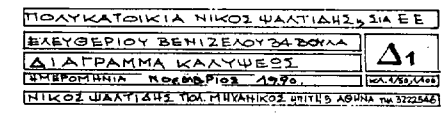 ΠΟΛΥΚΑΤΟΙΚΙΑ ΝΙΚΟΣ ΨΑΛΤΙΔΗΣ & ΣΙΑ ΕΕ
ΕΛΕΥΘΕΡΙΟΥ ΒΕΝΙΖΕΛΟΥ 34 ΒΟΥΛΑ
ΔΙΑΓΡΑΜΜΑ ΚΑΛΥΨΕΩΣ
Δ1
ΗΜΕΡΟΜΗΝΙΑ Νοεμβριος 1990. κλ. 1/50, 1/100
ΝΙΚΟΣ ΨΑΛΤΙΔΗΣ ΠΟΛ. ΜΗΧΑΝΙΚΟΣ ΑΘΗΝΑ τηλ 3222546